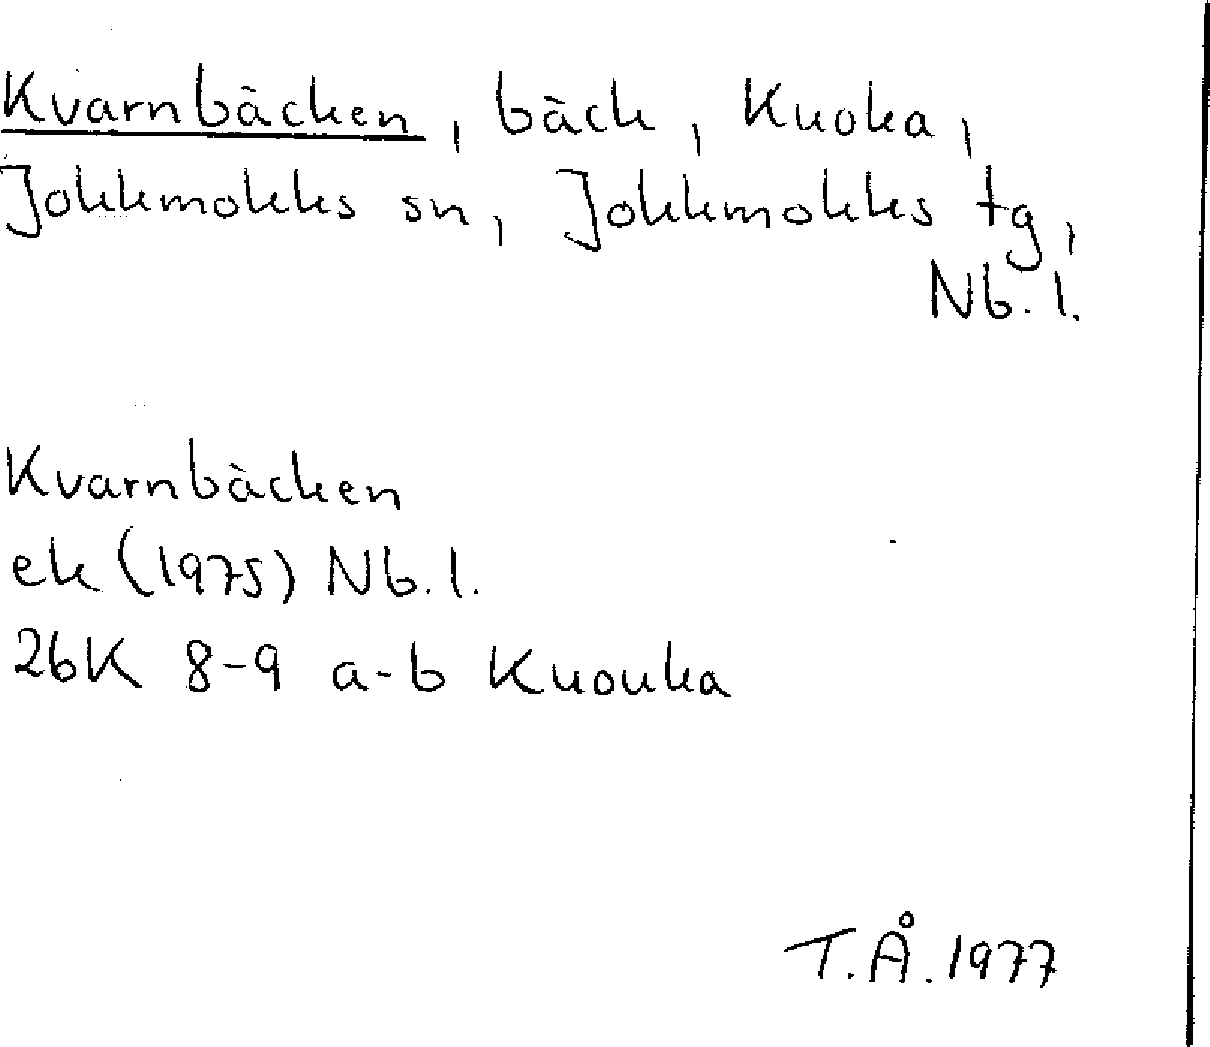 Kvarnbäcken, bäck, Kuoka,
Jokkmokks sn, Jokkmokks tg,
Nb. l.
Kvarnbäcken
ek (1975) Nb. l.
26K 8-9 a-b Kuouka
T.Å. 1977